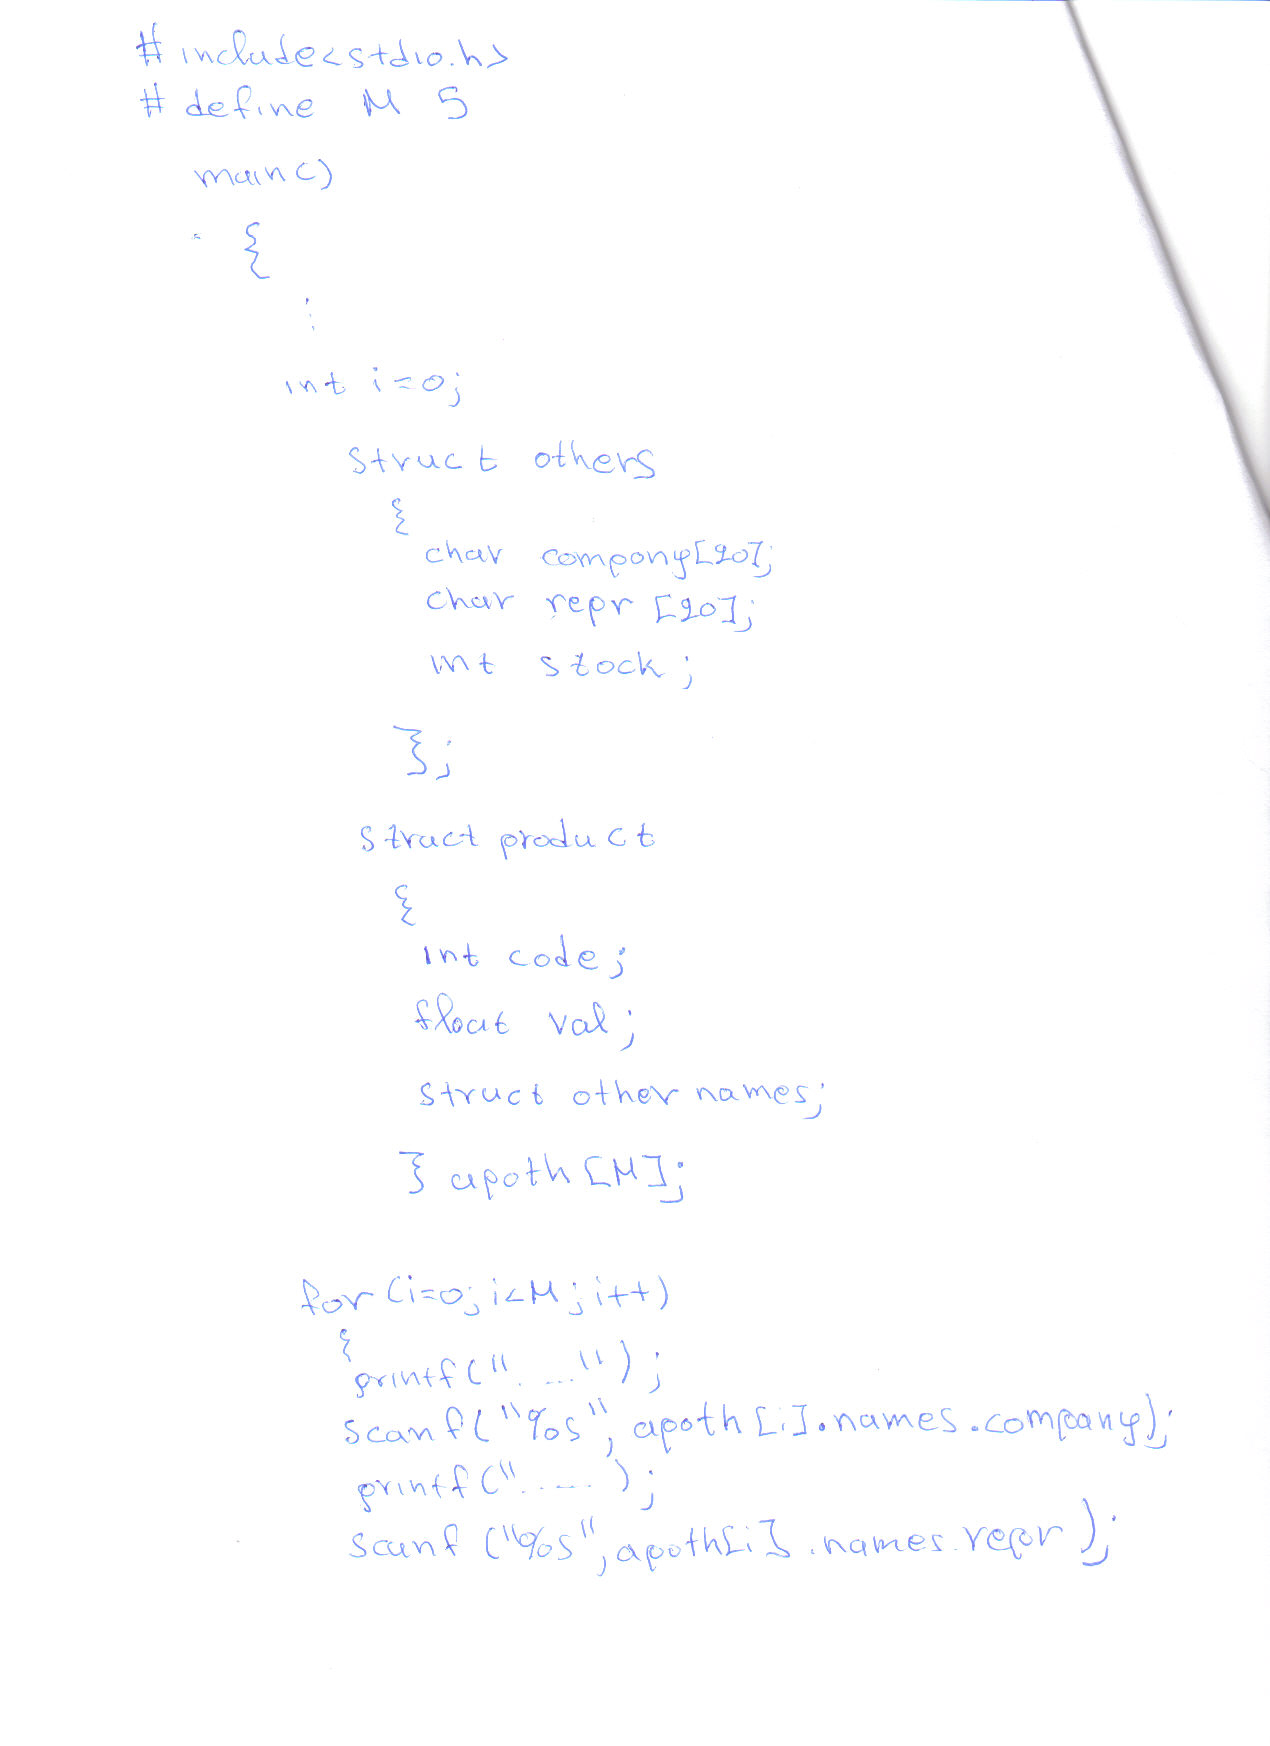 #include<stdio.h>
#define M 5
main()
{
:
int i=0;
struct others
{
char compony[20];
char repr [20];
int stock;
};
struct product
{
int code;
float val;
struct other names;
} apoth[M];
for (i=0; i<M; i++)
{
printf("....");
scanf("%s", apoth[i].names.company);
printf(".....);
scanf("%s", apoth[i].names.repr);